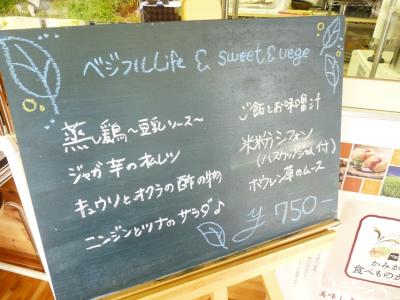 ベジフルLife & sweet & vege
蒸し鶏〜豆乳ソース〜
ジャガ芋のオムレツ
キュウリとオクラの酢の物
ニンジンとツナのサラダ♪
ご飯とお味噌汁
米粉シフォン
(ハスカップジャム付)
ホウレン草のムース
¥750-
かみか
食べものが